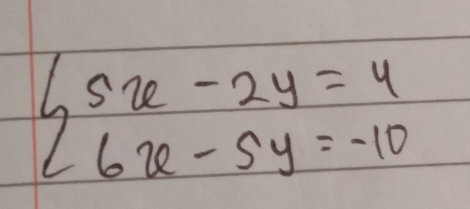 5x - 2y = 4
6x - 5y = -10